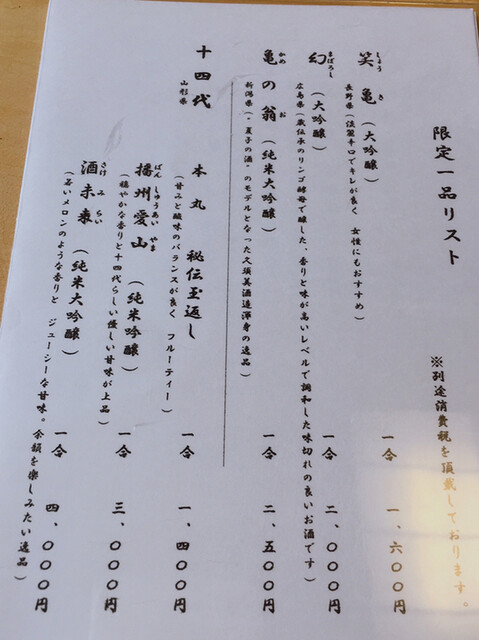 限定一品リスト
※別途消費税を頂戴しております。
笑亀（大吟醸） 一合 一、六〇〇円
しょうき
長野県（淡麗辛口でキレが良く 女性にもおすすめ）
幻（大吟醸） 一合 二、〇〇〇円
まぼろし
広島県（蔵伝承のリンゴ酵母で醸した、香りと味が高いレベルで調和した味切れの良いお酒です）
亀の翁（純米大吟醸） 一合 二、五〇〇円
かめ お
新潟県（“夏子の酒”のモデルとなった久須美酒造渾身の逸品）
十四代 本丸 秘伝玉返し 一合 一、四〇〇円
山形県
（甘みと酸味のバランスが良く フルーティー）
播州愛山（純米吟醸） 一合 三、〇〇〇円
ばんしゅうあいやま
（穏やかな香りと十四代らしい優しい甘味が上品）
酒未来（純米大吟醸） 一合 四、〇〇〇円
さけみらい
（若いメロンのような香りと ジューシーな甘味。余韻を楽しみたい逸品）